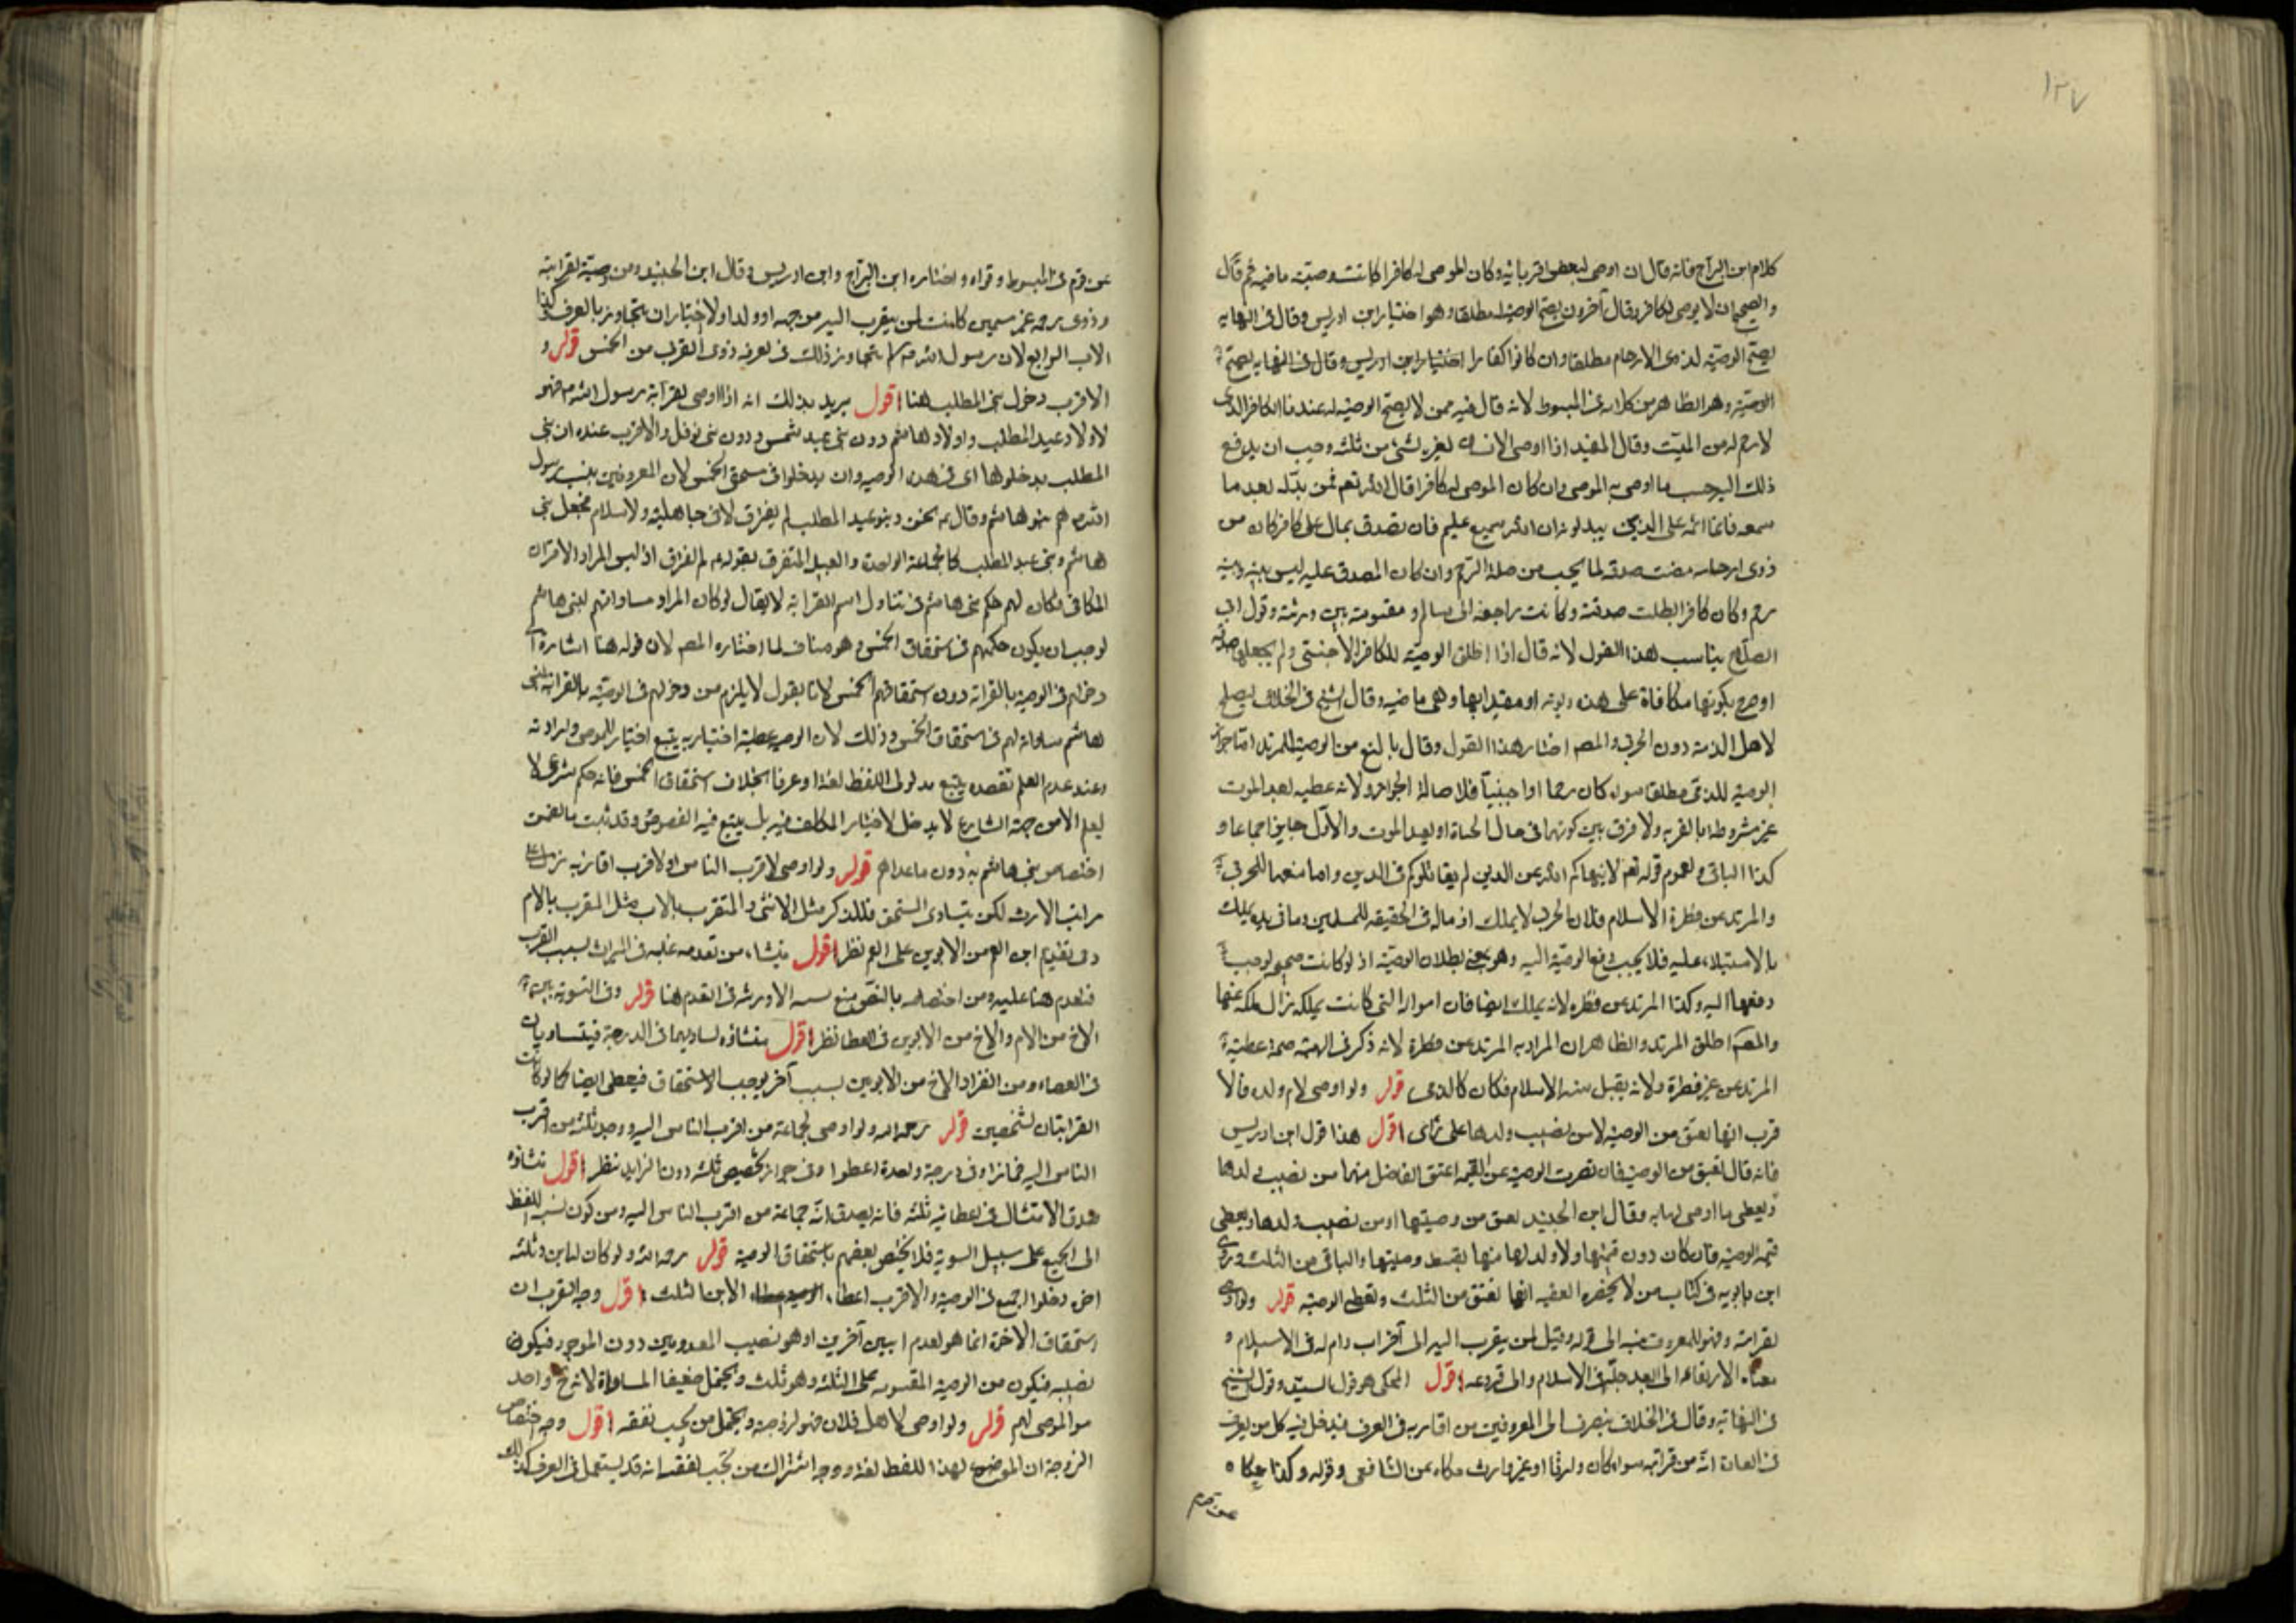 ١٢٧
كلام ابن البراج فانه قال ان اوصى لبعض اقربائه وكان الموصى له كافرا كانت وصيته ماضيه ثم قال
والصحيح ان لا يوصى لكافر وقال آخرون يصح الوصية له مطلقا وهو اختيار ابن ادريس وقال فى النهايه
يصح الوصيّه لذوى الارحام مطلقا وان كانوا كفارا اختيار ابن ادريس وقال فى النهايه يصح
الوصيّة وهو الظاهر من كلامه فى المبسوط لانه قال فيه ممن لا يصح الوصيّه له عندنا الكافر الذى
لا رحم له من الميّت وقال المفيد اذا اوصى الانسان لغيره بشئ من ثلثه وجب ان يدفع
ذلك اليه حسب ما اوصى به الموصى وان كان الموصى له كافرا قال الله تعم فمن بدّله بعد ما
سمعه فانما اثمه على الذين يبدلونه ان الله سميع عليم فان تصدق بمال على كافر كان من
ذوى ارحامه مضت صدقته لما يجب من صلة الرّحم وان كان المصدق عليه ليس بينه وبينه
رحم وكان كافرا بطلت صدقته وكانت راجعة الى ماله و مقسومة بين ورثته وقول ابى
الصلاح يناسب هذا القول لانه قال اذا اطلق الوصيّه للكافر الاجنبى ولم يجعلها صدقه
او صرح بكونها مكافاة على هذه دونه او مقيدا بها وهى ماضيه وقال الشيخ فى الخلاف يصلح
لاهل الذمة دون الحربى والمصـ اختار هذا القول وقال بالمنع من الوصيّة للمرتد امّا جواز
الوصيّه للذمّى مطلقا سواء كان رحما او اجنبيّا فلاصالة الجواز ولانه عطيه بعد الموت
غير مشروط بالقربه ولا فرق بين كونها فى حال الحياة او بعد الموت والاوّل جايز اجماعا و
كذا الباقى ولعموم قوله تعم لا ينهاكم الله عن الذين لم يقاتلوكم فى الدين واما منعها للحربى
والمرتد عن فطرة الاسلام فلان الحربى لا يملك اذ ماله فى الحقيقه للمسلمين وما فى يده يملك
بالاستيلاء عليه فلا يجب دفع الوصيّة اليه وهو معنى بطلان الوصيّه اذ لو كانت صحيحه لوجب
دفعها اليه وكذا المرتد عن فطره لانه يملك ايضا فان امواله التى كانت يملكه زال ملكه عنها
والمصـ اطلق المرتد والظاهر ان المراد به المرتد عن فطرة لانه ذكر فى الهبة صحة عطية
المرتد عن غير فطرة ولانه يقبل منه الاسلام فكان كالذمى قوله ولو اوصى لام ولده فالا
قرب انها تعتق من الوصيه لا من نصيب ولدها على رأى اقول هذا قول ابن ادريس
فانه قال تعتق من الوصيه فان قصرت الوصيه عن القيمه اعتق الفاضل منها من نصيب ولدها
ويعطى ما اوصى لها به وقال ابن الجنيد تعتق من وصيتها او من نصيب ولدها ويعطى
قيمه الوصيه فان كان دون قيمتها ولا ولد لها منها بقسط وصيتها والباقى من الثلث وروى
ابن بابويه فى كتاب من لا يحضره الفقيه انها تعتق من الثلث وتعطى الوصيّه قوله ولو اوصى
لقرابته فهو للمعروف بنسبه الى قوله وقيل لمن يتقرب اليه الى آخر اب وام له فى الاسلام و
معناه الارتقاء الى ابعد جدّ فى الاسلام والى فروعه اقول المحكى هو قول السيّد وقول الشيخ
فى النهايه وقال فى الخلاف ينصرف الى المعروفين من اقاربه فى العرف فيدخل فيه كل من يعرف
فى العادة انّه من قرابته سواء كان وارثا او غير وارث حكاه عن الشافعى وقوله وكذا حكاه
عن قوم
عن قوم فى المبسوط وقواه واختاره ابن البراج وابن ادريس وقال ابن الجنيد ومن وصيّة لقرابته
وذوى رحمه غير مسمين كانت لمن يقرب اليه من جهه او ولد ولا اختيار ان يتجاوز بالعرف كذا
الاب الرابع لان رسول الله صـ لم يتجاوز ذلك فى تعرفه ذوى القربى من الخمس قوله و
الاقرب دخول بنى المطلب هنا اقول يريد بذلك انه اذا اوصى لقرابة رسول الله صـ فهو
لاولاد عبد المطلب واولاد هاشم دون بنى عبد شمس ودون بنى نوفل والاقرب عنده ان بنى
المطلب يدخلوها اى فى هذه الوصيه وان يدخلوا فى مستحق الخمس لان المعروفين بنسب رسول
الله صـ هم بنو هاشم وقال عـ نحن وبنو عبد المطلب لم يفترق لا فى جاهلية ولا اسلام فجعل بنى
هاشم وبنى عبد المطلب كالجماعة الواحدة والعبيد المتفرق بقوله عـ لم نفترق اذ ليس المراد الافتراق
المكانى فكان لهم حكم بنى هاشم فى تناول اسم القرابة لا يقال لو كان المراد مساواتهم لبنى هاشم
لوجب ان يكون حكمهم فى استحقاق الخمس وهو مناف لما اختاره المصـ لان قوله هنا اشارة الى
دخولهم فى الوصيه بالقرابة دون استحقاقهم الخمس لانا نقول لا يلزم من دخولهم فى الوصيّه بالقرابة لبنى
هاشم مساواته لهم فى استحقاق الخمس وذلك لان الوصيه عطية اختياريه يتبع اختيار الموصى وارادته
وعند عدم العلم بقصده يتبع مدلول اللفظ لغة او عرفا بخلاف استحقاق الخمس فانه حكم شرعى لا
يعلم الا من جهة الشارع لا يدخل لاختيار المكلف فيه بل يتبع فيه النصوص وقد ثبت بالنص
اختصاص بنى هاشم به دون ما عداهم قوله ولو اوصى لاقرب الناس او لاقرب اقاربه نزل على
مراتب الارث لكن يتساوى المستحق فللذكر مثل الانثى والمتقرب بالاب مثل المتقرب بالام
وفى تقديم ابن العم من الابوين على العم نظر اقول ينشاء من تقدمه عليه فى الميراث بسبب القرب
فيقدم هنا عليه ومن اختصاصه بالنص منع الارث فى التقدم هنا قوله وفى التسوية بين
الاخ من الام والاخ من الابوين فى العطا نظر اقول منشاؤه تساويهما فى الدرجة فيتساويان
فى العطاء ومن انفراد الاخ من الابوين بسبب آخر يوجب الاستحقاق فيعطى ايضا كما لو كانت
القرابتان لشخصين قوله رحمه الله ولو اوصى لجماعة من اقرب الناس اليه ووجد ثلثه من اقرب
الناس اليه فما زاد فى درجة واحدة اعطوا وفى جواز تخصيص ثلثه دون الزايد نظر اقول منشاؤه
صدق الامتثال فى اعطائه ثلثه فانه يصدق انّه جماعة من اقرب الناس اليه ومن كون نسبه اللفظ
الى الجميع على سبيل السوية فلا يختص بعضهم باستحقاق الوصية قوله رحمه الله ولو كان له ابن وثلثه
اخوه دخلوا الجميع فى الوصيه والاقرب اعطاء الابن الثلث اقول وجه القرب ان
استحقاق الاخوة انما هو لعدم ابنين آخرين اذ هو نصيب المعدومين دون الموجود فيكون
نصيبه فيكون من الوصية المقسومه على الثلثه وهو ثلث ويحتمل ضعيفا المساواة لانه واحد
من الموصى لهم قوله ولو اوصى لاهل فلان فهو لزوجته ويحتمل من يجب نفقته اقول وجه اختصاص
الزوجة ان الموضوع لهذا اللفظ لغه ووجه اشتراك من تجب نفقته انه قد يستعمل فى العرف كذلك